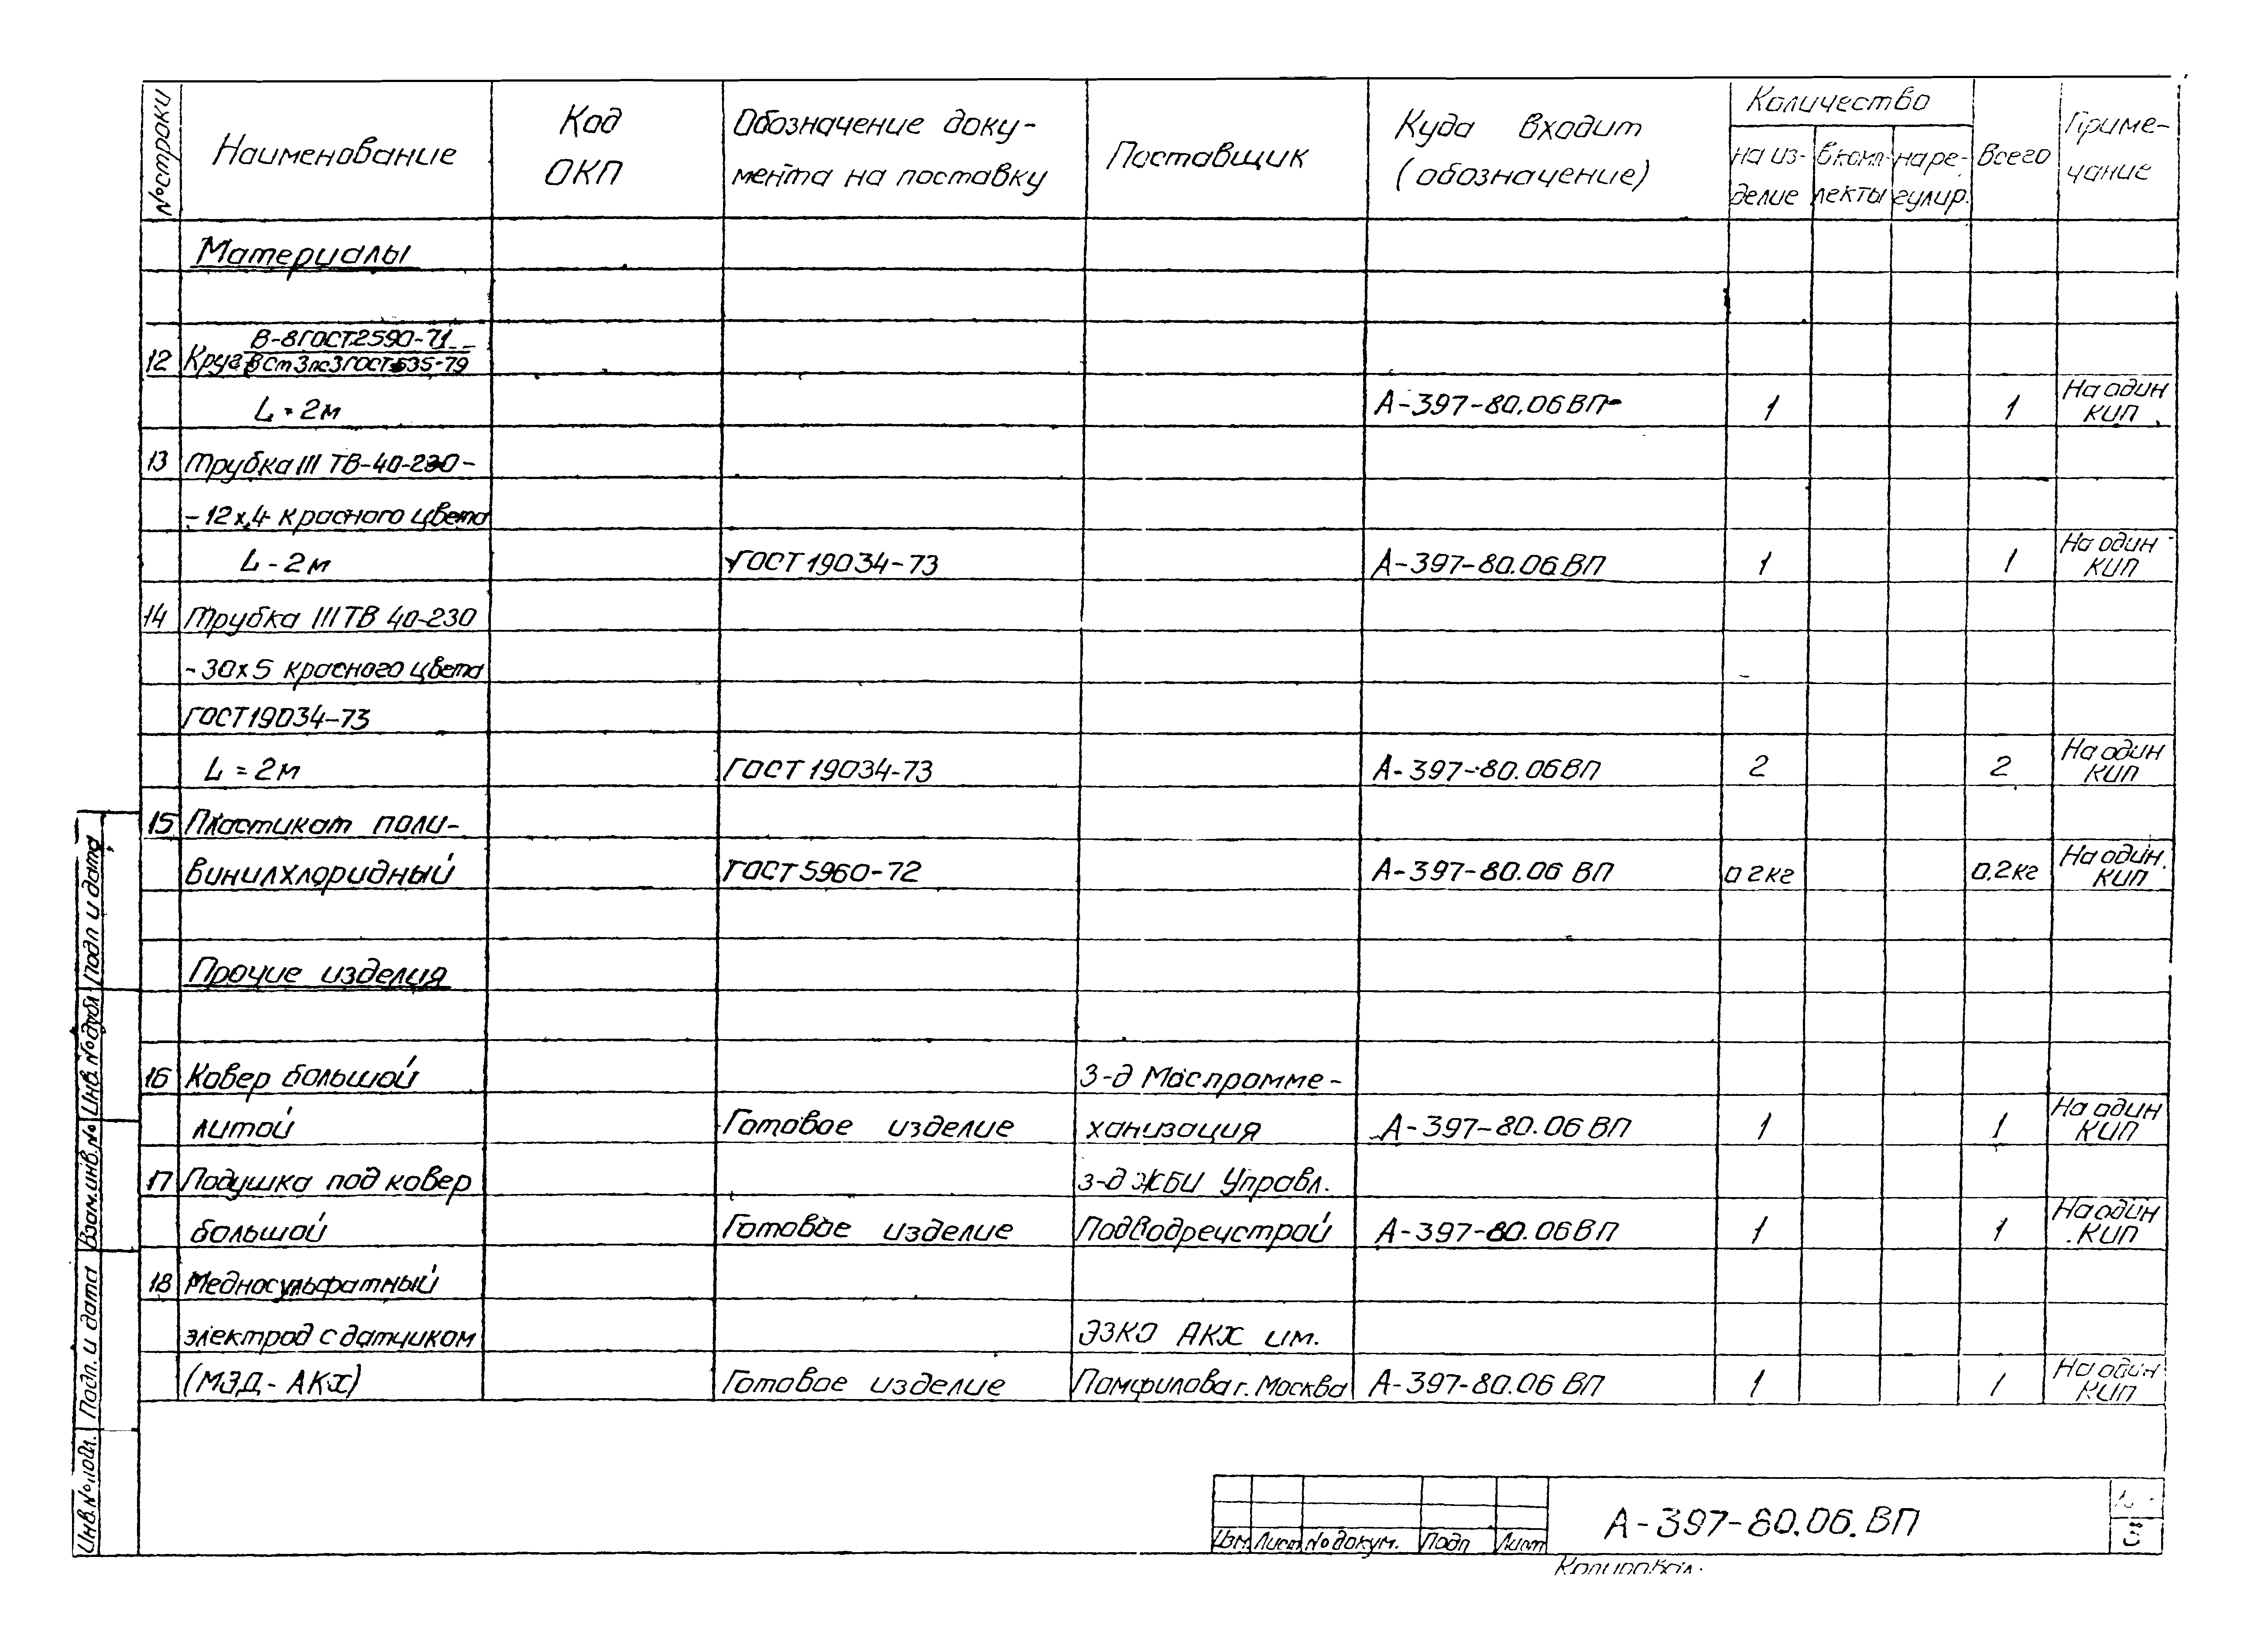 № строки
Наименование
Код
ОКП
Обозначение доку-
мента на поставку
Поставщик
Куда входит
(обозначение)
Количество
на из-
делие
в комп-
лекты
на ре-
гулир.
Всего
Приме-
чание
Материалы
В-8 ГОСТ 2590-71
12 Круг ВСт3пс3 ГОСТ 535-79
L = 2м А-397-80.06 ВП 1 1 На один КИП
13 Трубка III ТВ-40-230-
-12х4 красного цвета
L - 2м ГОСТ 19034-73 А-397-80.06 ВП 1 1 На один КИП
14 Трубка III ТВ 40-230
-30х5 красного цвета
ГОСТ 19034-73
L = 2м ГОСТ 19034-73 А-397-80.06 ВП 2 2 На один КИП
15 Пластикат поли-
винилхлоридный ГОСТ 5960-72 А-397-80.06 ВП 0 2кг 0,2кг На один КИП
Прочие изделия
16 Ковер большой З-д Моспромме-
литой Готовое изделие ханизация А-397-80.06 ВП 1 1 На один КИП
17 Подушка под ковер з-д ЖБИ Управл.
большой Готовое изделие Подводречстрой А-397-80.06 ВП 1 1 На один КИП
18 Медносульфатный
электрод с датчиком ЭЗКО АКХ им.
(МЭД-АКХ) Готовое изделие Памфилова г. Москва А-397-80.06 ВП 1 1 На один КИП
Подп и дата
Инв. № дубл
Взам. инв. №
Подп. и дата
Инв. № подл.
Изм Лист № докум. Подп Лист
А-397-80.06. ВП
Копировал: